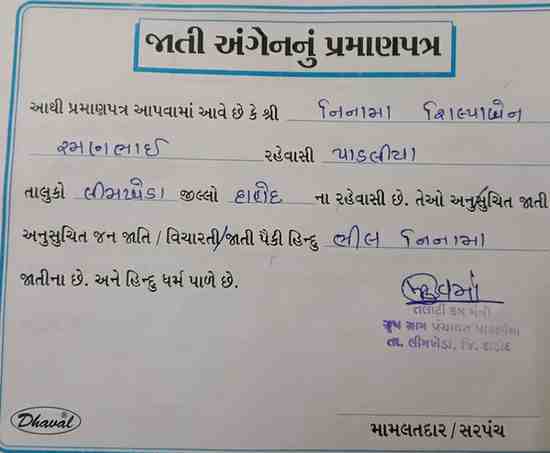 જાતી અંગેનનું પ્રમાણપત્ર
આથી પ્રમાણપત્ર આપવામાં આવે છે કે શ્રી નિનામા શિલ્પાબેન
રમણભાઈ રહેવાસી પાડલીયા
તાલુકો લીમખેડા જીલ્લો દાહોદ ના રહેવાસી છે. તેઓ અનુસુચિત જાતી
અનુસુચિત જન જાતિ / વિચારતી/જાતી પૈકી હિન્દુ ભીલ નિનામા
જાતીના છે. અને હિન્દુ ધર્મ પાળે છે.
તલાટી કમ મંત્રી
ગ્રુપ ગ્રામ પંચાયત
તા. લીમખેડા, જિ. દાહોદ
Dhaval
મામલતદાર / સરપંચ